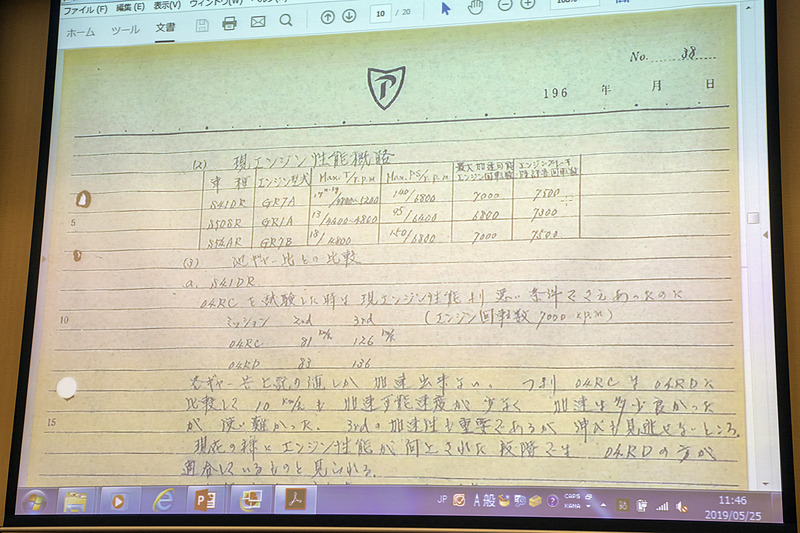 ファイル(F) 編集(E) 表示(V) ウィンドウ(W)
ホーム ツール 文書 10 / 20
No. 38
P
196 年 月 日
(2) 現エンジン性能概略
車種 エンジン型式 Max. T/r.p.m Max. PS/r.p.m 最大加速可能エンジン回転数 エンジンブレーキ許容回転数
S41DR GR7A /4800~5200 140/6800 7000 7500
S50SR GR1A 13/4600~4800 95/6400 6800 7300
S54AR GR7B 18/4800 150/6800 7000 7500
5
(3) ギヤー比との比較
a. S41DR
04RCを試験した時は現エンジン性能より悪い条件でさえあったのに
10
ミッション 2nd 3rd (エンジン回転数 7000 r.p.m)
04RC 81 km/h 126 km/h
04RD 83 136
各ギヤー共上記の通りしか加速出来ない。つまり 04RCは04RDに
比較して 10 km/hも加速可能速度が少なく 加速は多少良かった
15
が使い難かった。3rdの加速性も重要であるが 伸びも見逃せないところ。
現在の様にエンジン性能が向上された段階では 04RDの方が
適合しているものと見られる。
JP A 般 CAPS KANA
11:46
2019/05/25